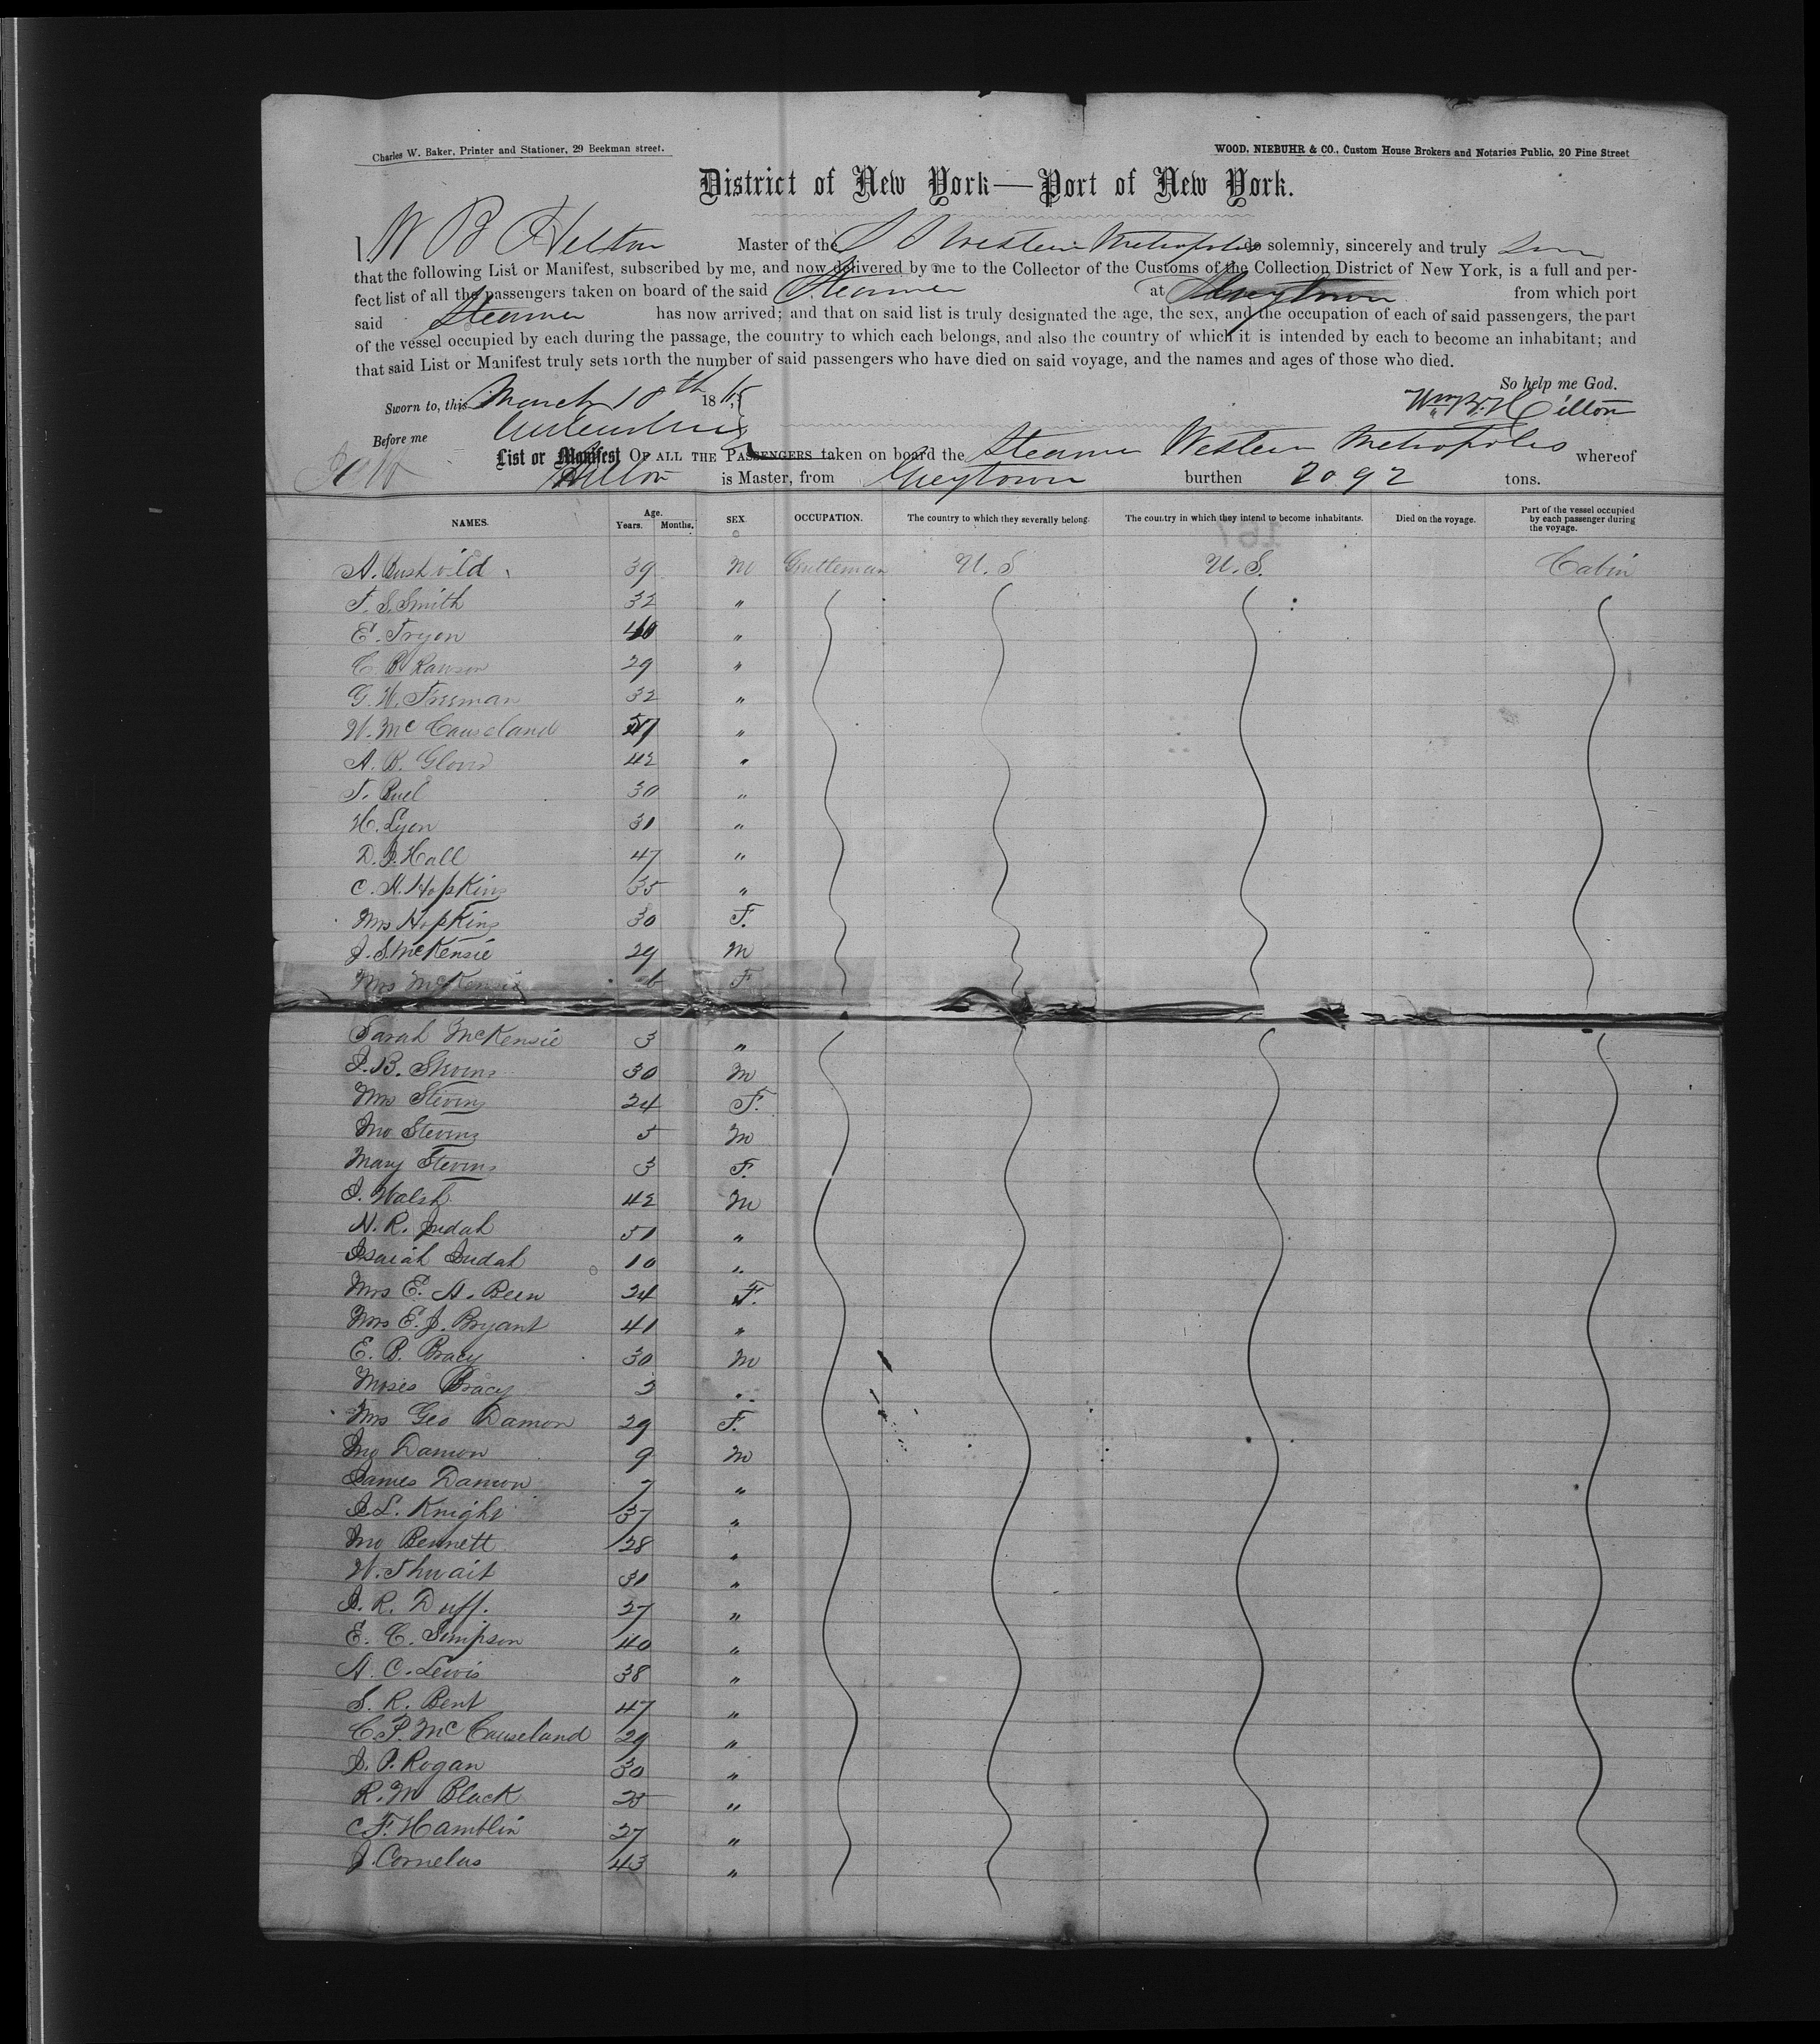 Charles W. Baker, Printer and Stationer, 29 Beekman street.
WOOD, NIEBUHR & CO., Custom House Brokers and Notaries Public, 20 Pine Street
District of New York—Port of New York.
I, W B Hilton Master of the S S Western Metropolis do solemnly, sincerely and truly
that the following List or Manifest, subscribed by me, and now delivered by me to the Collector of the Customs of the Collection District of New York, is a full and per-
fect list of all the passengers taken on board of the said Steamer at Greytown from which port
said Steamer has now arrived; and that on said list is truly designated the age, the sex, and the occupation of each of said passengers, the part
of the vessel occupied by each during the passage, the country to which each belongs, and also the country of which it is intended by each to become an inhabitant; and
that said List or Manifest truly sets forth the number of said passengers who have died on said voyage, and the names and ages of those who died.
So help me God.
Sworn to, this March 18th 18
Wm B. Hilton
Before me
List or Manifest OF ALL THE PASSENGERS taken on board the Steamer Western Metropolis whereof
Hilton is Master, from Greytown burthen 2092 tons.
NAMES. Age. Years. Months. SEX. OCCUPATION. The country to which they severally belong. The country in which they intend to become inhabitants. Died on the voyage. Part of the vessel occupied by each passenger during the voyage.
A. 39 M Gentleman U. S U. S. Cabin
F. S. Smith 32 "
E. Tryon 40 "
C B Rawson 29 "
G. W. Freeman 32 "
W. McCauseland "
A. B. Glover 42 "
T. Buel 30 "
H. Lyon 31 "
D. J. Hall 47 "
C. H. Hopkins 35 "
Mrs Hopkins 30 F.
J. S. McKensie 29 M
Mrs McKensie F
Sarah McKensie 3 "
J. B. Stevens 30 M
Mrs Stevens 24 F.
Jno Stevens 5 M
Mary Stevens 3 F.
J. Walsh 42 M
H. R. Judah 51 "
Isaiah Judah 10 "
Mrs E. A. Been 24 F.
Mrs E. J. Bryant 41 "
E. B. Bracy 30 M
Moses Bracy 3 "
Mrs Geo Damon 29 F.
Jno Damon 9 M
James Damon 7 "
J. L. Knight 37 "
Jno Bennett 28 "
W. Thwait 31 "
J. R. Duff. 27 "
E. C. Simpson 40 "
A. C. Lewis 38 "
S. R. Bent 47 "
C. P. McCauseland 29 "
J. P. Rogan 30 "
R. M Black 25 "
C F. Hamblin 27 "
J. Cornelus 43 "